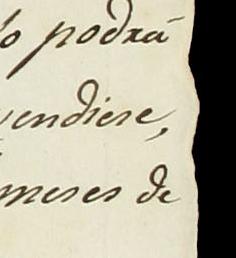 lo podrá
vendiere,
meses de